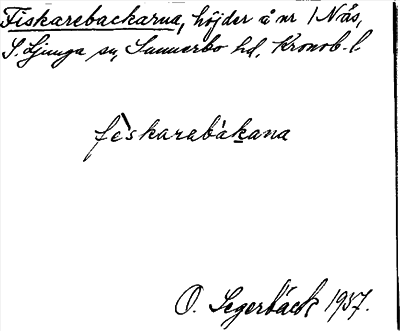 Fiskarebackarna, höjder å nr 1 Nås,
S. Ljunga sn, Sunnerbo hd, Kronob. l
fèskarabákana
O. Segerbäck 1937.